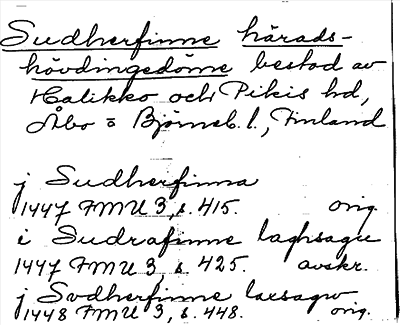 Sudherfinne härads-
hövdingedöme bestod av
Halikko och Pikis hd,
Åbo o Björneb. l., Finland
j Sudherfinna
1447 FMU 3, s. 415. orig.
i Sudrafinne laghsagu
1447 FMU 3, s. 425. avskr.
j Svdherfinne laxsagw
1448 FMU 3, s. 448. orig.